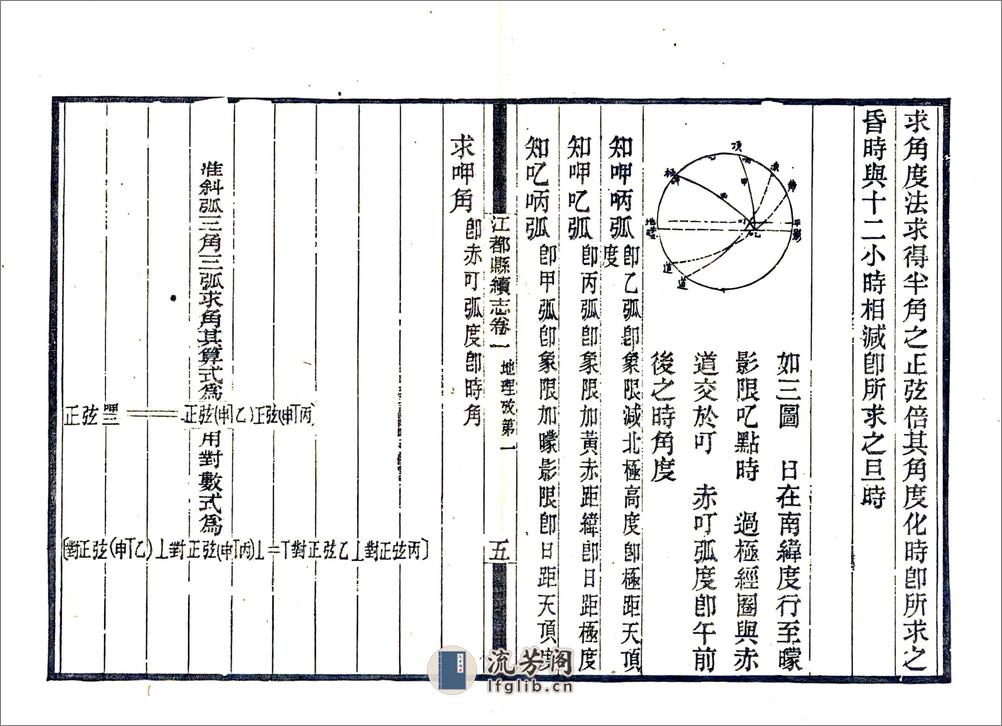 求角度法求得半角之正弦倍其角度化時卽所求之
昏時與十二小時相減卽所求之旦時
頂
赤
極
地
道
道
如三圖 日在南緯度行至矇
影限叱點時 過極經圈與赤
道交於叮 赤叮弧度卽午前
後之時角度
知呷呐弧卽乙弧卽象限減北極高度卽極距天頂
度
知呷叱弧卽丙弧卽象限加黃赤距緯卽日距極度
知叱呐弧卽甲弧卽象限加矇影限卽日距天頂
江都縣續志卷一 地理攷第一 五
求呷角卽赤叮弧度卽時角
准斜弧三角三弧求角其算式爲
正弦 正弦(申丅乙)正弦(申丅丙)
用對數式爲
〔對正弦(申丅乙)丄對正弦(申丅丙)丄=丅對正弦乙丄對正弦丙〕
流芳閣
lfglib.cn